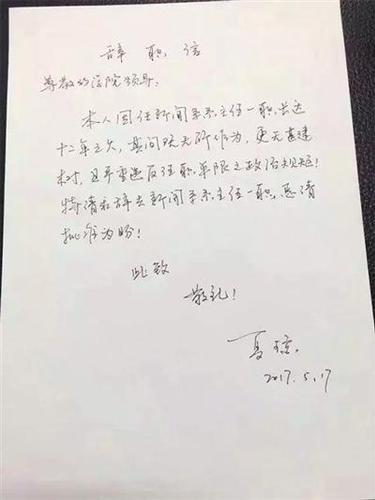 辞职信
尊敬的学院领导:
本人因任新闻系系主任一职,长达
十二年之久,其间既无所作为,更无甚建
树,且严重违反任职年限之政治规矩!
特请求辞去新闻系系主任一职,恳请
批准为盼!
此致
敬礼!
夏琼
2017.5.17